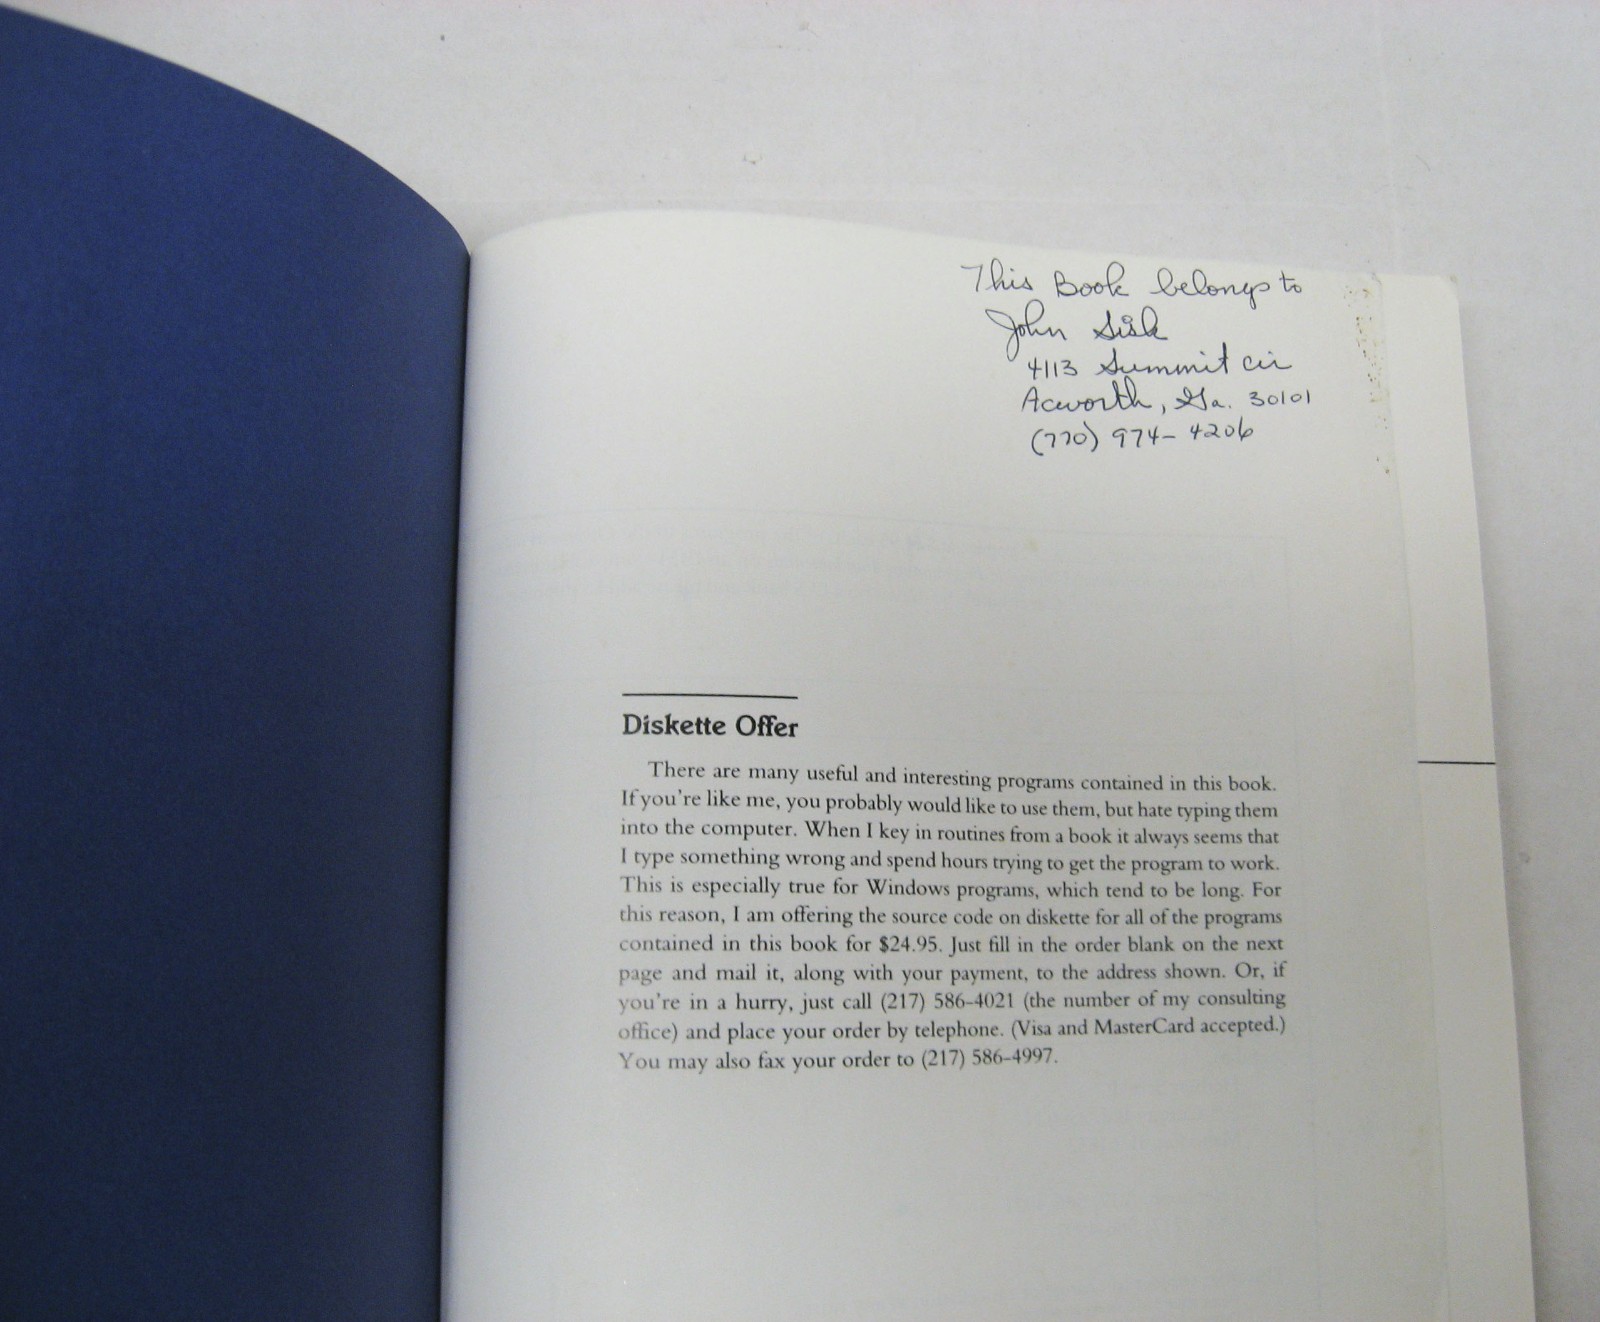 This Book belongs to
John Sisk
4113 Summit Cir
Acworth, Ga. 30101
(770) 974-4206
Diskette Offer
There are many useful and interesting programs contained in this book.
If you're like me, you probably would like to use them, but hate typing them
into the computer. When I key in routines from a book it always seems that
I type something wrong and spend hours trying to get the program to work.
This is especially true for Windows programs, which tend to be long. For
this reason, I am offering the source code on diskette for all of the programs
contained in this book for $24.95. Just fill in the order blank on the next
page and mail it, along with your payment, to the address shown. Or, if
you're in a hurry, just call (217) 586-4021 (the number of my consulting
office) and place your order by telephone. (Visa and MasterCard accepted.)
You may also fax your order to (217) 586-4997.